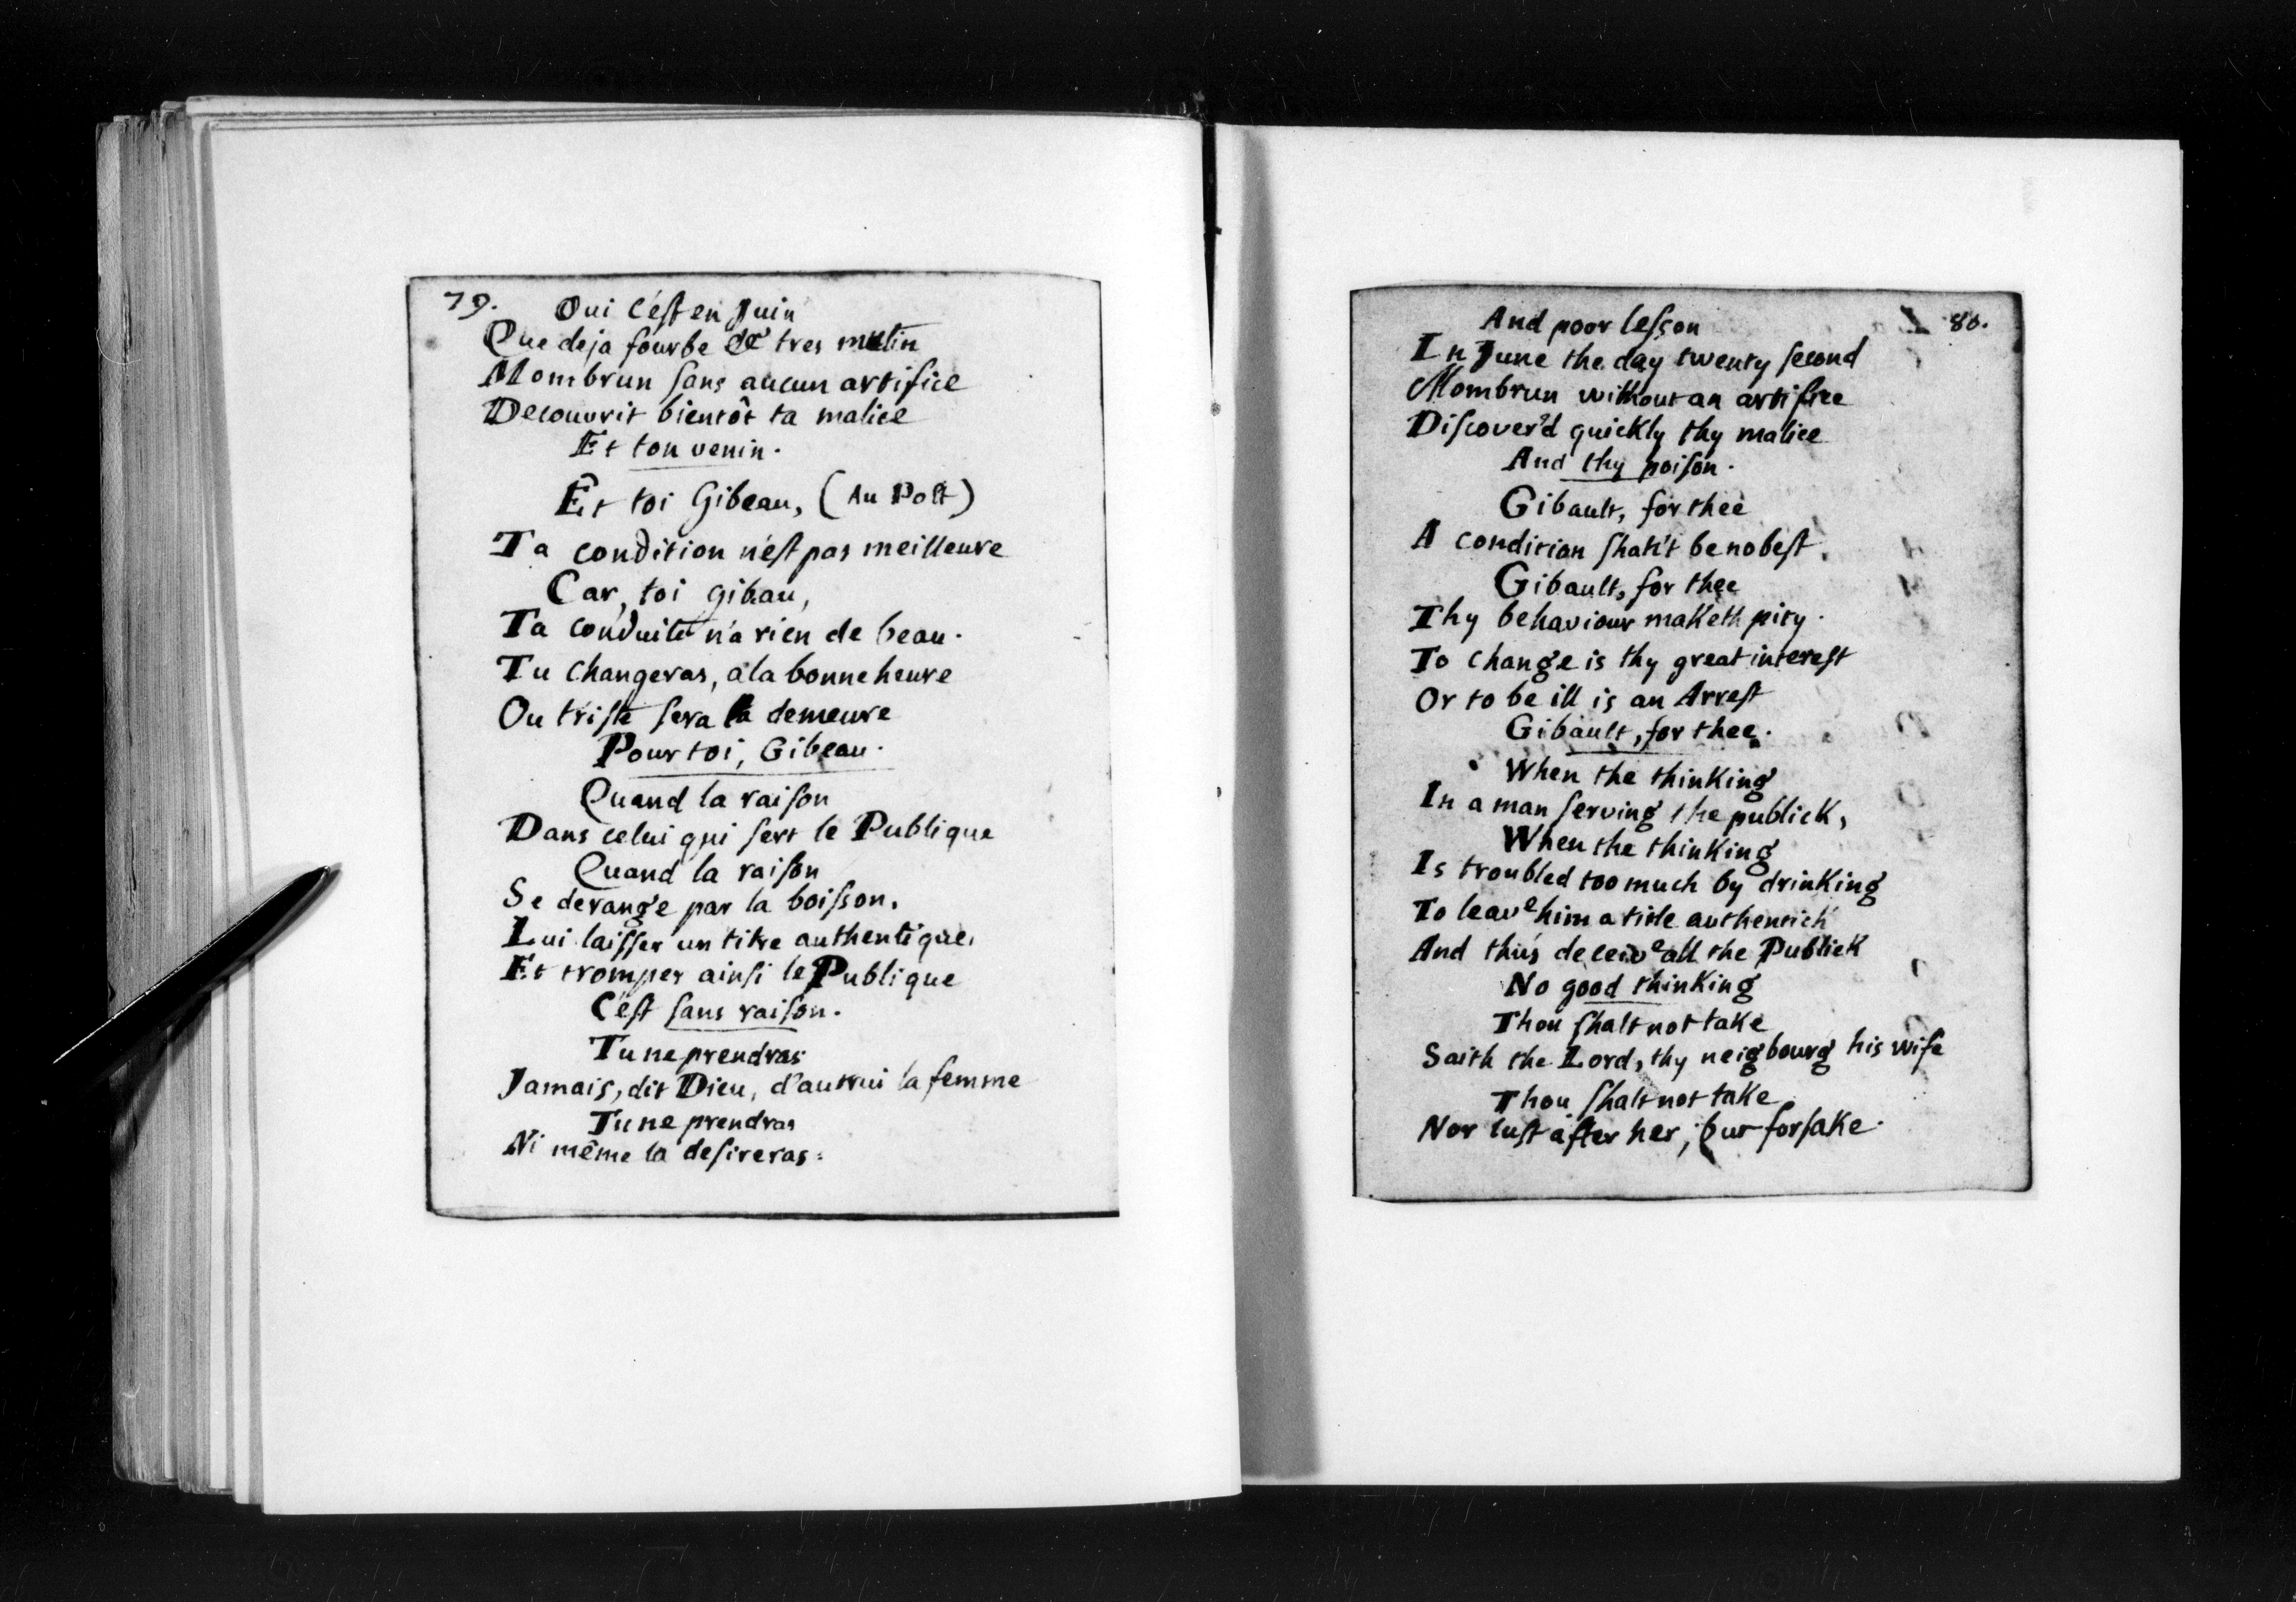 79.
Oui c'est en Juin
Que deja fourbe & tres mutin
Mombrun sans aucun artifice
Decouvrit bientôt ta malice
Et ton venin.
Et toi Gibeau, (Au Polt)
Ta condition n'est pas meilleure
Car, toi gibau,
Ta conduite n'a rien de beau.
Tu changeras, a la bonne heure
Ou triste sera la demeure
Pour toi, Gibeau.
Quand la raison
Dans celui qui sert le Publique
Quand la raison
Se derange par la boisson,
Lui laisser un titre authentique,
Et tromper ainsi le Publique
C'est sans raison.
Tu ne prendras
Jamais, dit Dieu, d'autrui la femme
Tu ne prendras
Ni même la desireras:
80.
And poor lesson
In June the day twenty second
Mombrun without an artifice
Discover'd quickly thy malice
And thy poison.
Gibault, for thee
A condition shah't be no best,
Gibault, for thee
Thy behaviour maketh pity.
To change is thy great interest
Or to be ill is an Arrest
Gibault, for thee.
When the thinking
In a man serving the publick,
When the thinking
Is troubled too much by drinking
To leave him a title authentich
And thus deceive all the Publick
No good thinking
Thou shalt not take
Saith the Lord, thy neigbourg his wife
Thou shalt not take
Nor lust after her, but forsake.